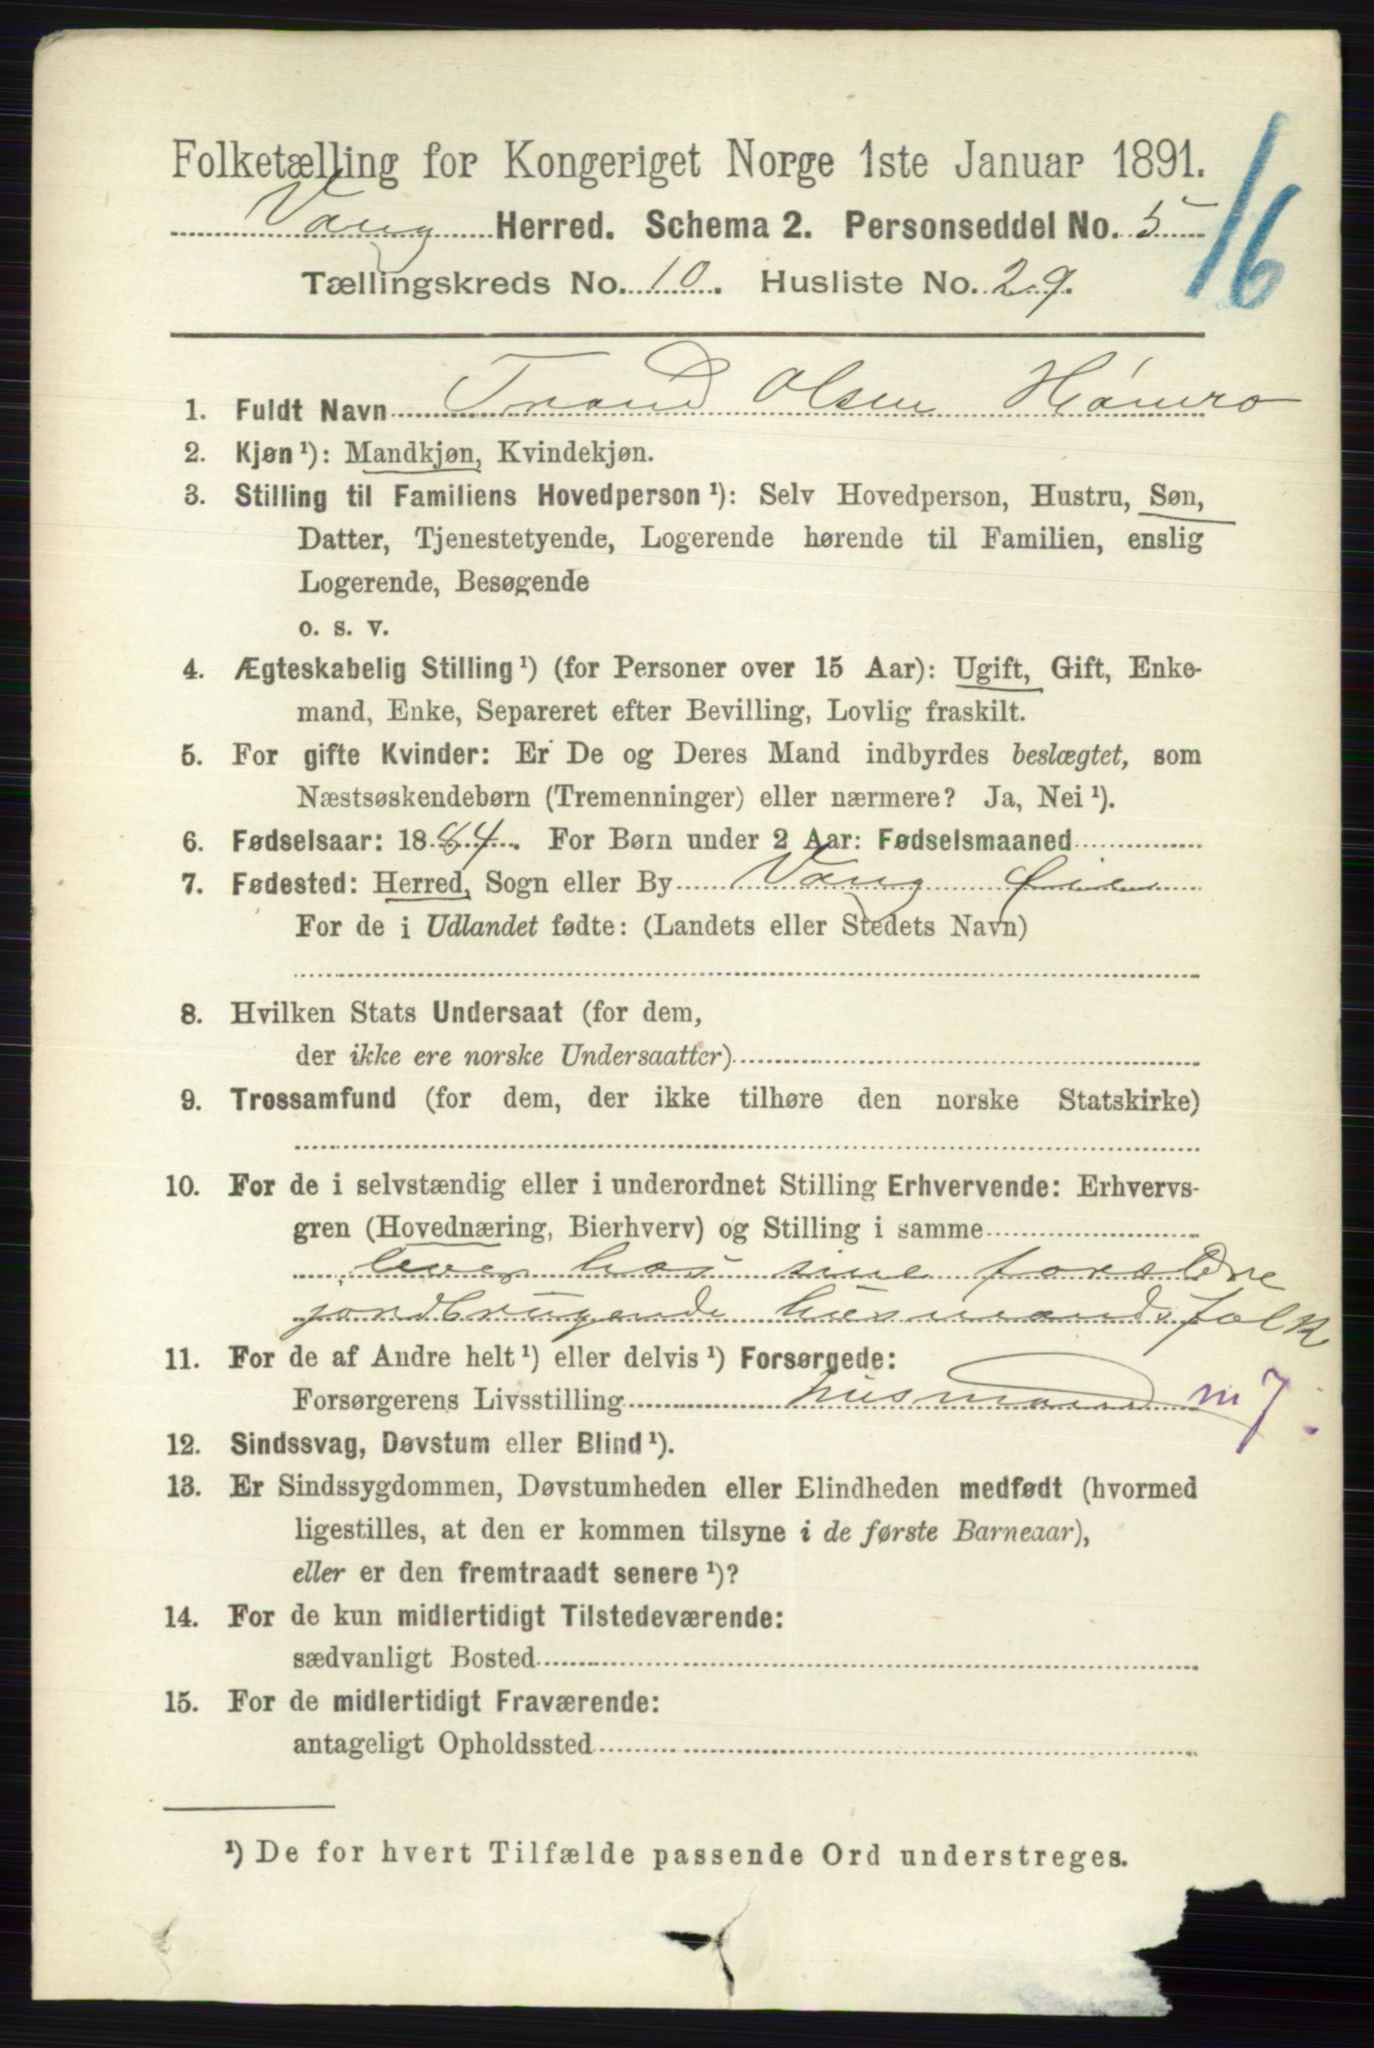 Folketælling for Kongeriget Norge 1ste Januar 1891.
16
Vang Herred. Schema 2. Personseddel No. 5
Tællingskreds No. 10. Husliste No. 29.
1. Fuldt Navn Trond Olsen
2. Kjøn¹): Mandkjøn, Kvindekjøn.
3. Stilling til Familiens Hovedperson¹): Selv Hovedperson, Hustru, Søn,
Datter, Tjenestetyende, Logerende hørende til Familien, enslig
Logerende, Besøgende
o. s. v.
4. Ægteskabelig Stilling¹) (for Personer over 15 Aar): Ugift, Gift, Enke-
mand, Enke, Separeret efter Bevilling, Lovlig fraskilt.
5. For gifte Kvinder: Er De og Deres Mand indbyrdes beslægtet, som
Næstsøskendebørn (Tremenninger) eller nærmere? Ja, Nei¹).
6. Fødselsaar: 1884. For Børn under 2 Aar: Fødselsmaaned
7. Fødested: Herred, Sogn eller By Vang Øie
For de i Udlandet fødte: (Landets eller Stedets Navn)
8. Hvilken Stats Undersaat (for dem,
der ikke ere norske Undersaatter)
9. Trossamfund (for dem, der ikke tilhøre den norske Statskirke)
10. For de i selvstændig eller i underordnet Stilling Erhvervende: Erhvervs-
gren (Hovednæring, Bierhverv) og Stilling i samme
lever hos sine forældre
jordbrugende husmandsfolk
11. For de af Andre helt¹) eller delvis¹) Forsørgede:
Forsørgerens Livsstilling husmand m 7.
12. Sindssvag, Døvstum eller Blind¹).
13. Er Sindssygdommen, Døvstumheden eller Blindheden medfødt (hvormed
ligestilles, at den er kommen tilsyne i de første Barneaar),
eller er den fremtraadt senere¹)?
14. For de kun midlertidigt Tilstedeværende:
sædvanligt Bosted
15. For de midlertidigt Fraværende:
antageligt Opholdssted
¹) De for hvert Tilfælde passende Ord understreges.